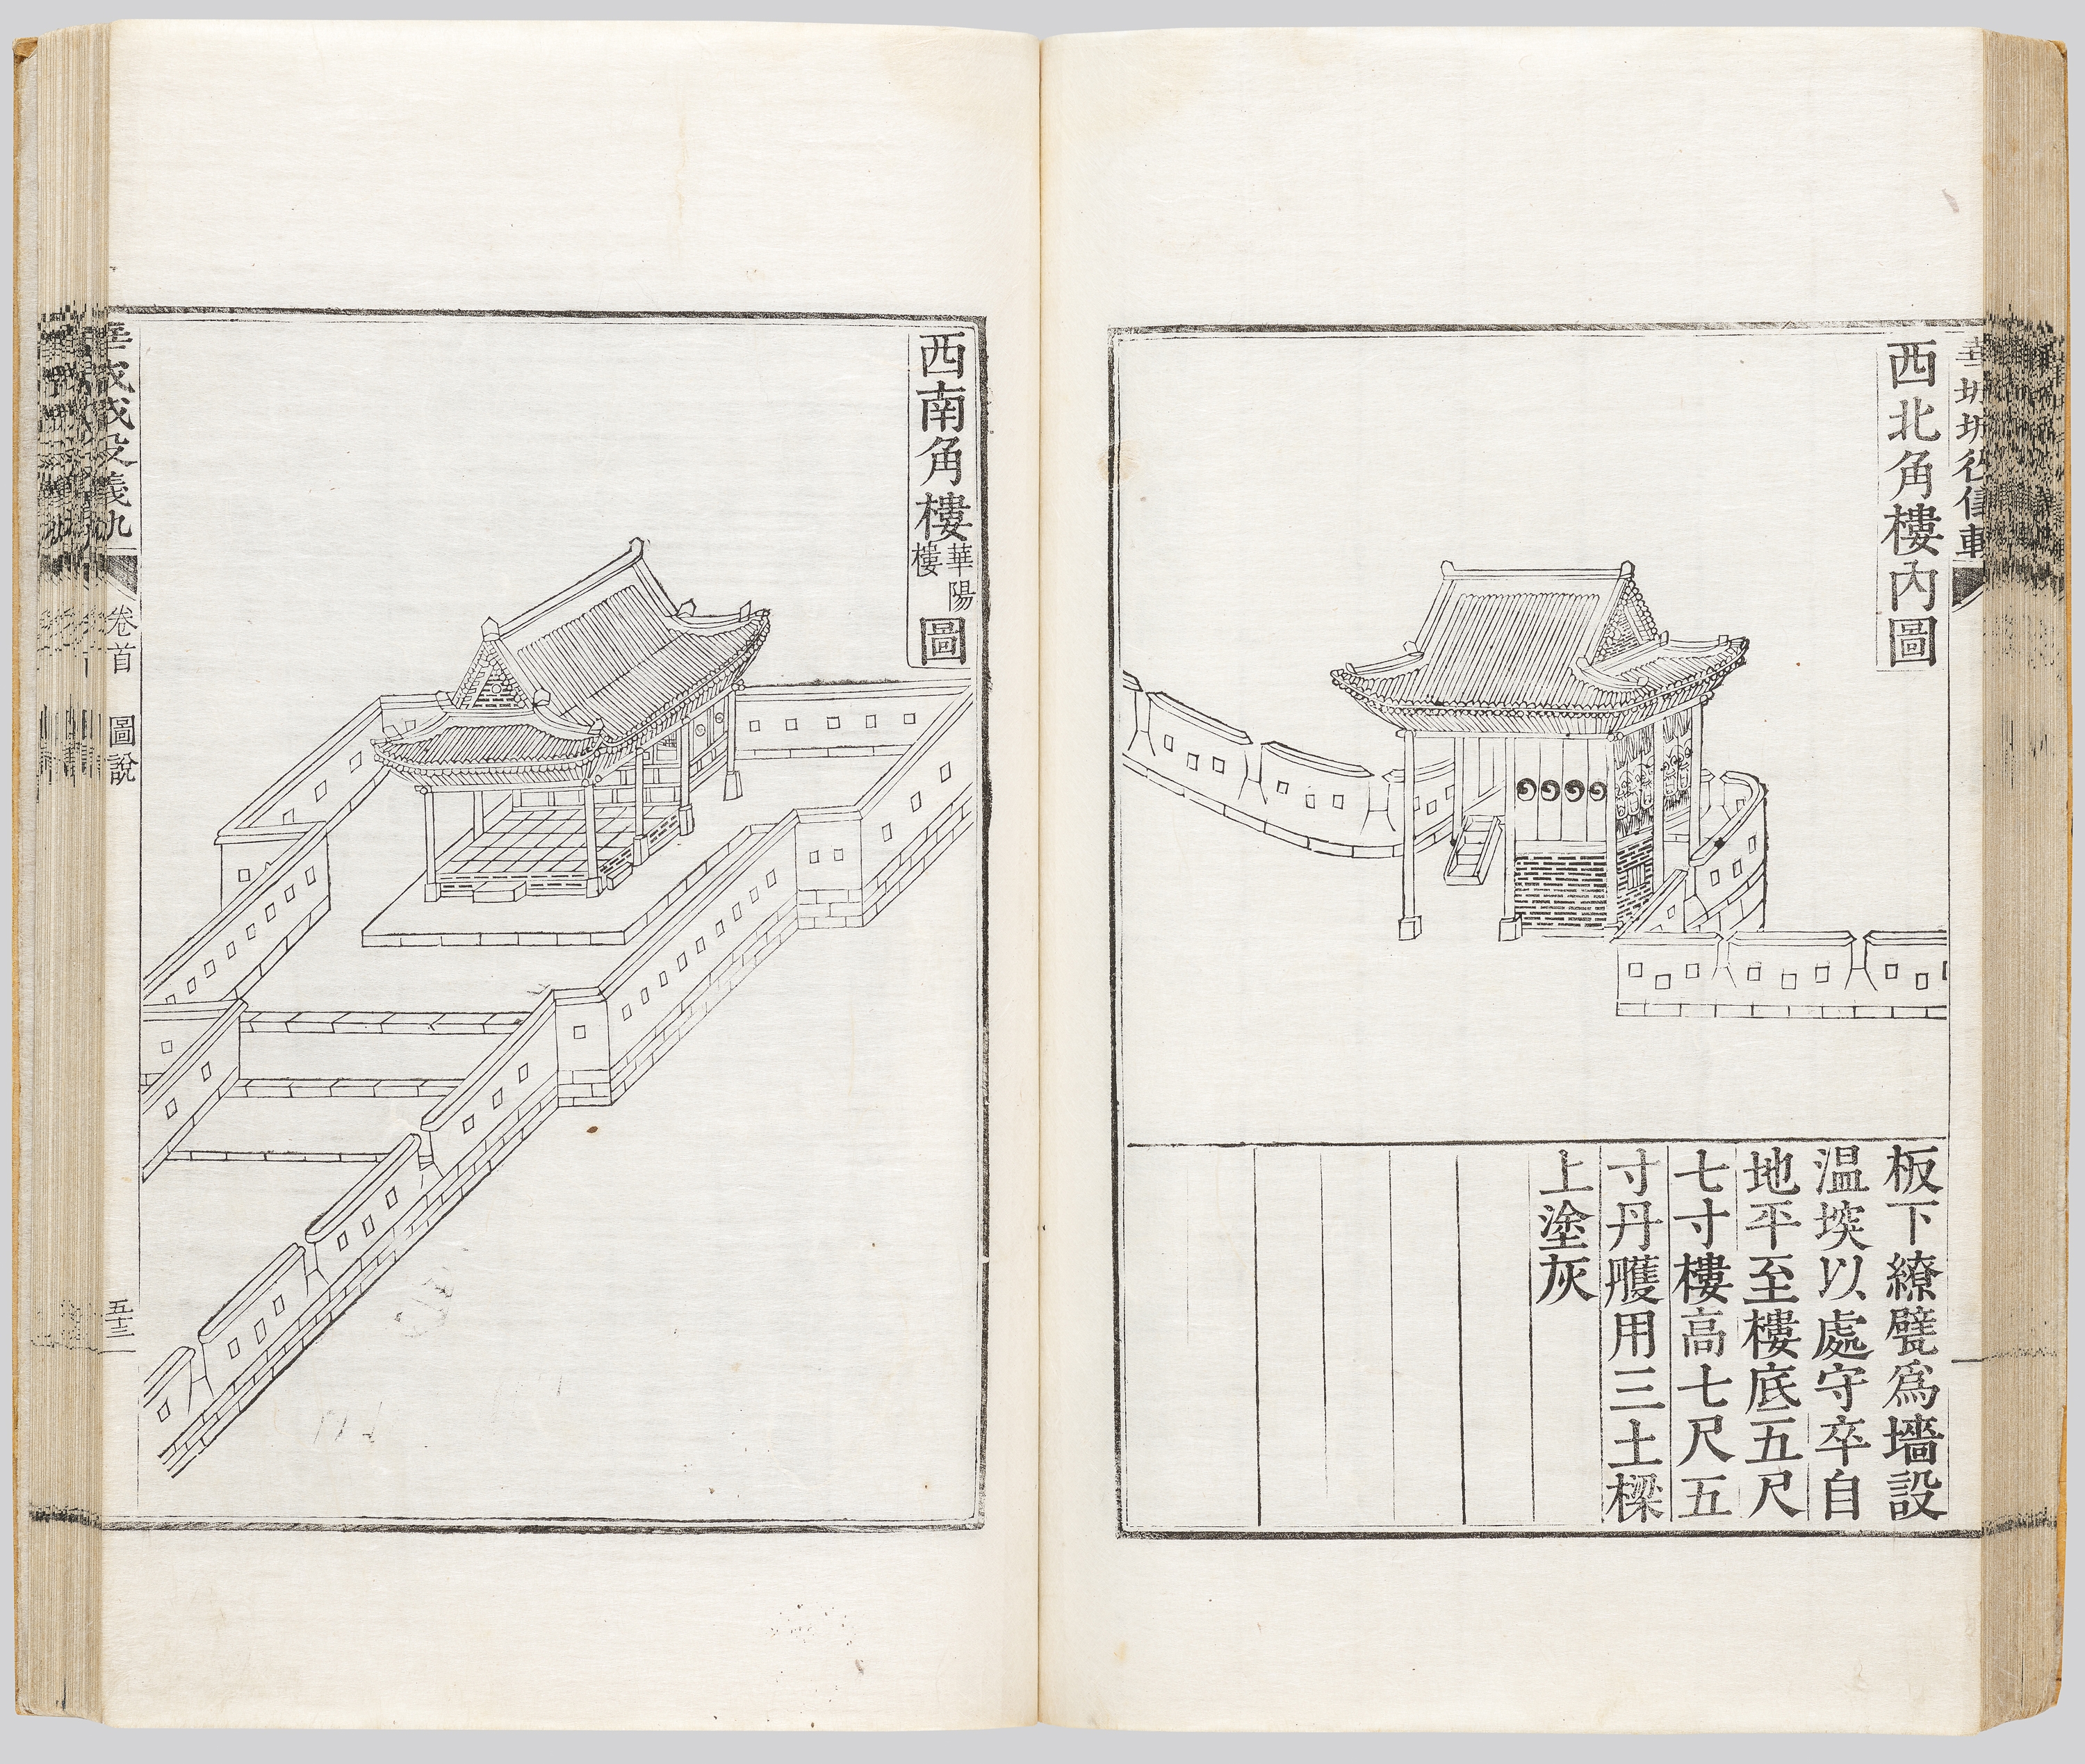 西北角樓內圖
板下繚甓爲墻設
温堗以處守卒自
地平至樓底五尺
七寸樓高七尺五
寸丹雘用三土樑
上塗灰
西南角樓華陽樓圖
卷首 圖說
五十三